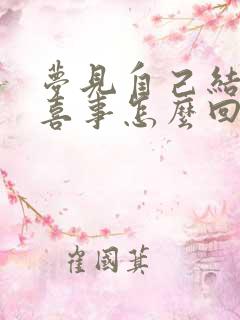 夢見自己結
喜事怎麼回
崔國箕